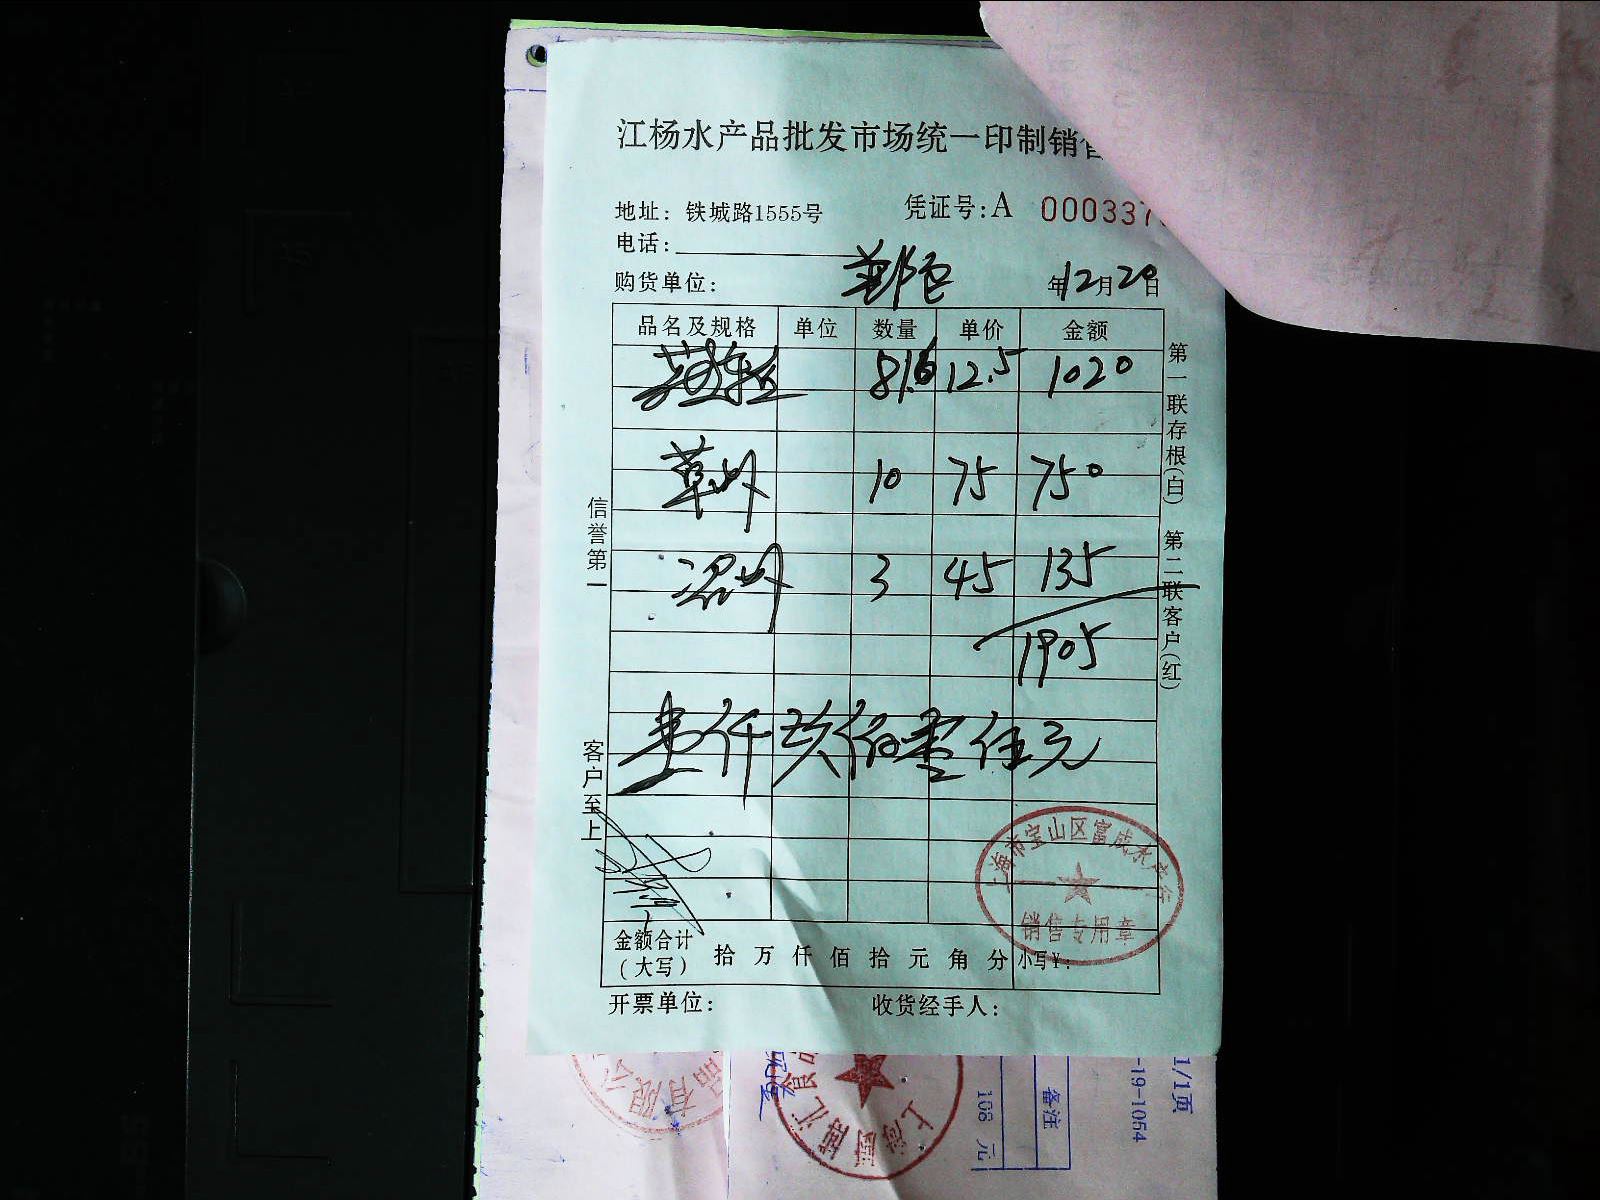 江杨水产品批发市场统一印制销售
地址：铁城路1555号 凭证号：A 000337
电话：
购货单位： 年12月20日
品名及规格 单位 数量 单价 金额
81.6 12.5 1020
草虾 10 75 750
3 45 135
1905
壹仟玖佰零伍元
金额合计（大写） 拾 万 仟 佰 拾 元 角 分 小写￥：
开票单位： 收货经手人：
信誉第一
客户至上
第一联存根(白)
第二联客户(红)
上海市宝山区富成水产行
销售专用章
品有限公
1/1页
-19-1054
备注
108 元